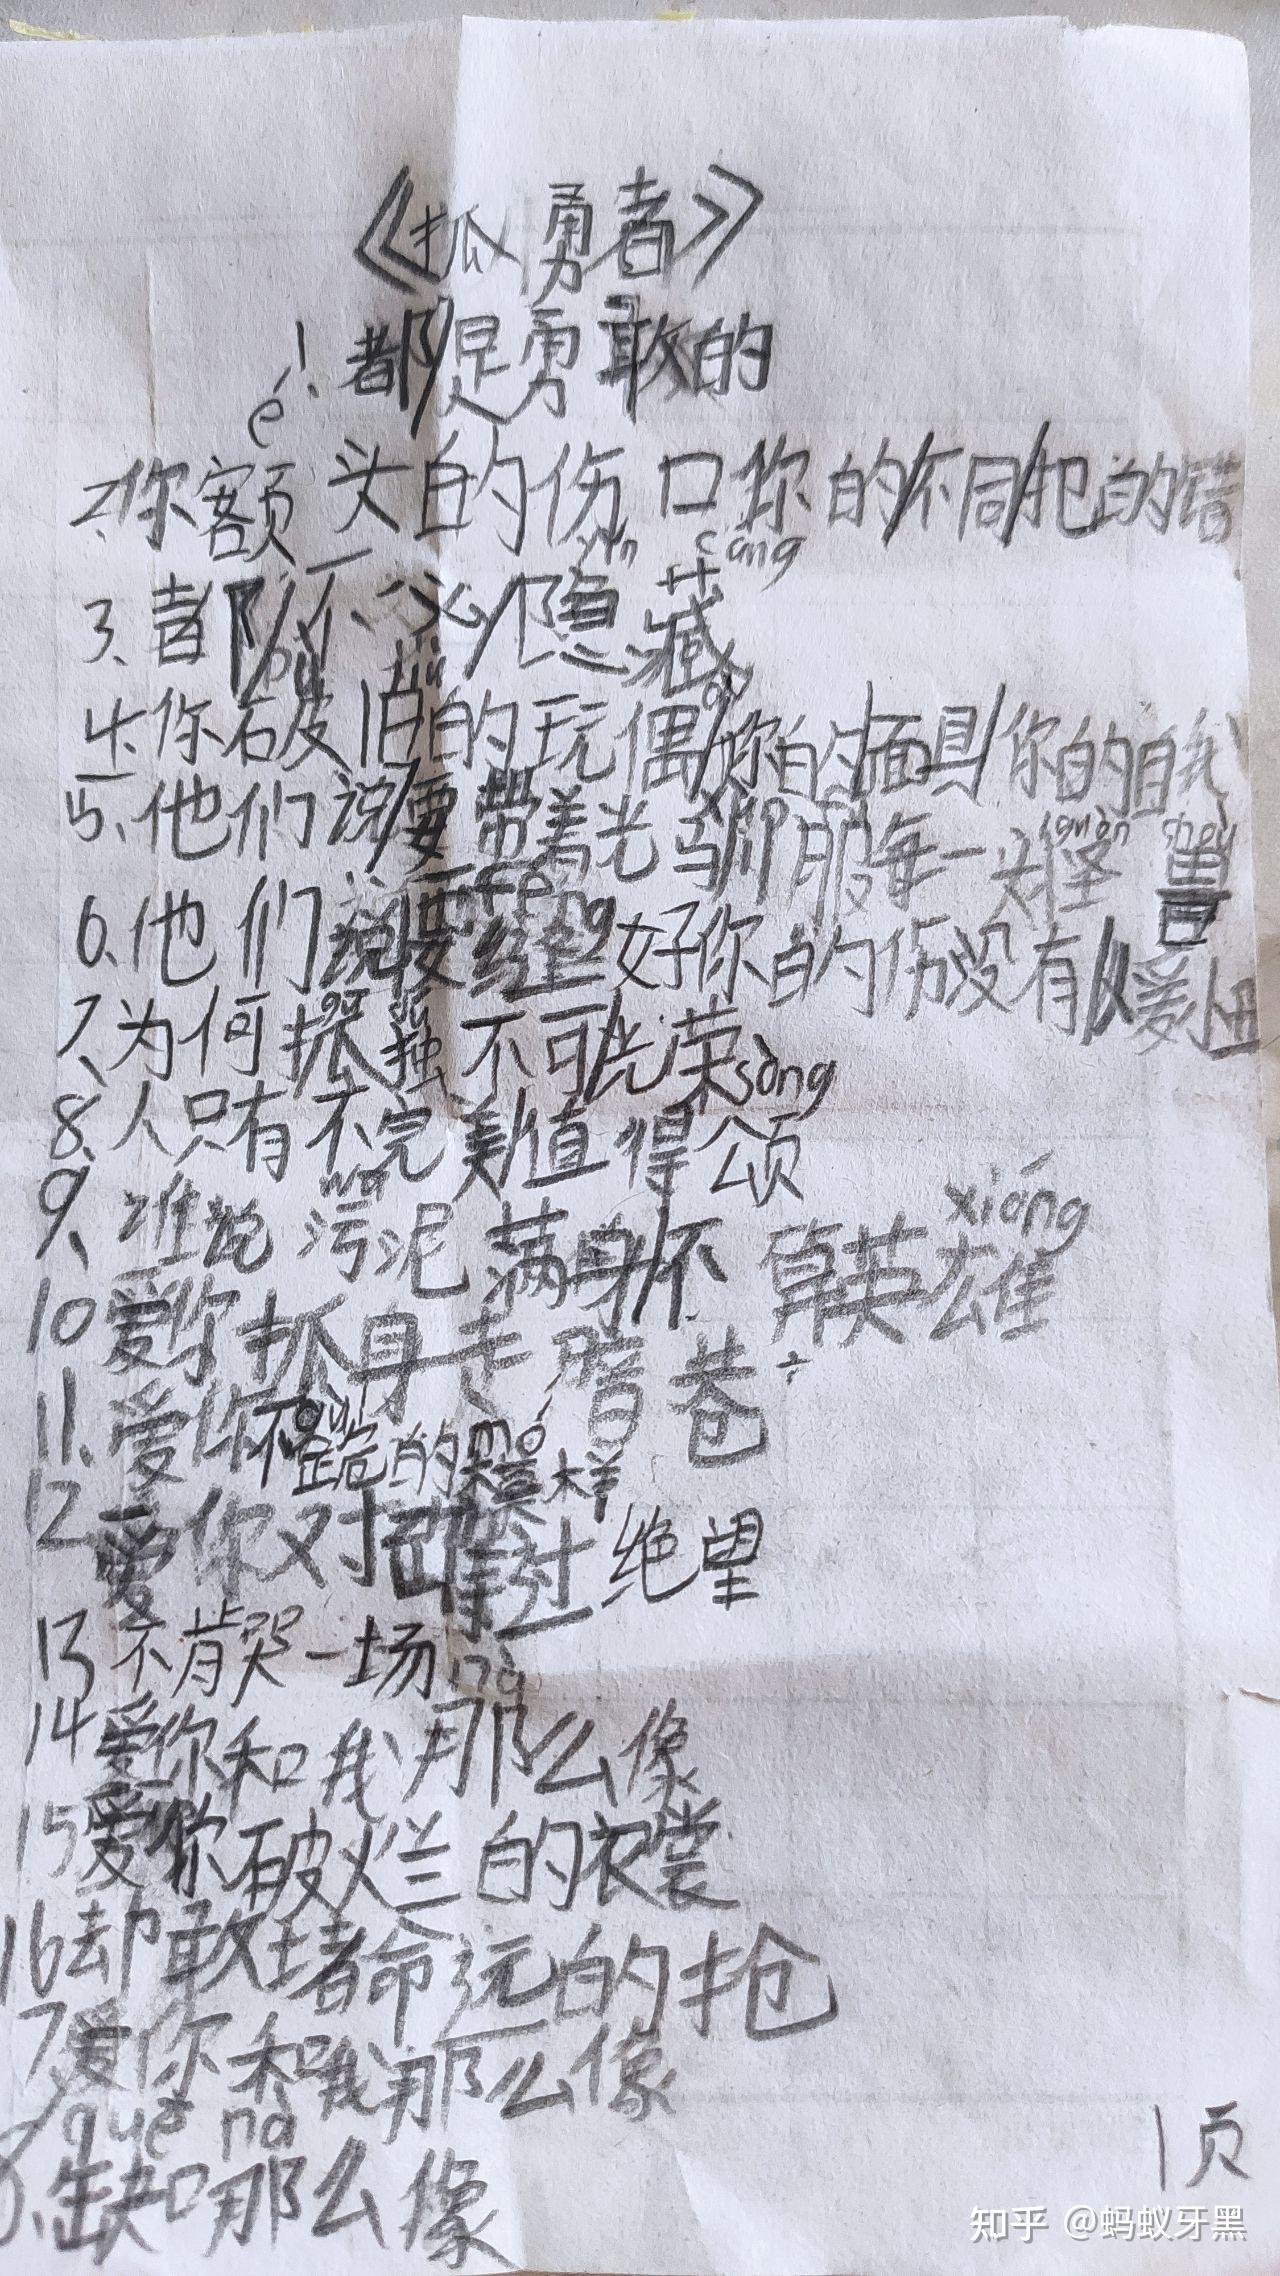 《孤勇者》
1、都是勇敢的
é
2、你额头的伤口你的不同犯的错
yǐn cáng
3、都不必隐藏
bù jiù ǒu
4、你破旧的玩偶你的面具你的自我
5、他们说要带着光驯服每一头怪兽
féng
6、他们说要缝好你的伤没有人爱小丑
7、为何孤独不可光荣
sòng
8、人只有不完美值得颂
9、谁说污泥满身不算英雄
xióng
10爱你孤身走暗巷
11、爱你不跪的模样
mó
12爱你对峙过绝望
13不肯哭一场
nà
14爱你和我那么像
15爱你破烂的衣裳
16却敢堵命远的抢
17爱你和我那么像
quē nà
缺口那么像
1页
知乎 @蚂蚁牙黑